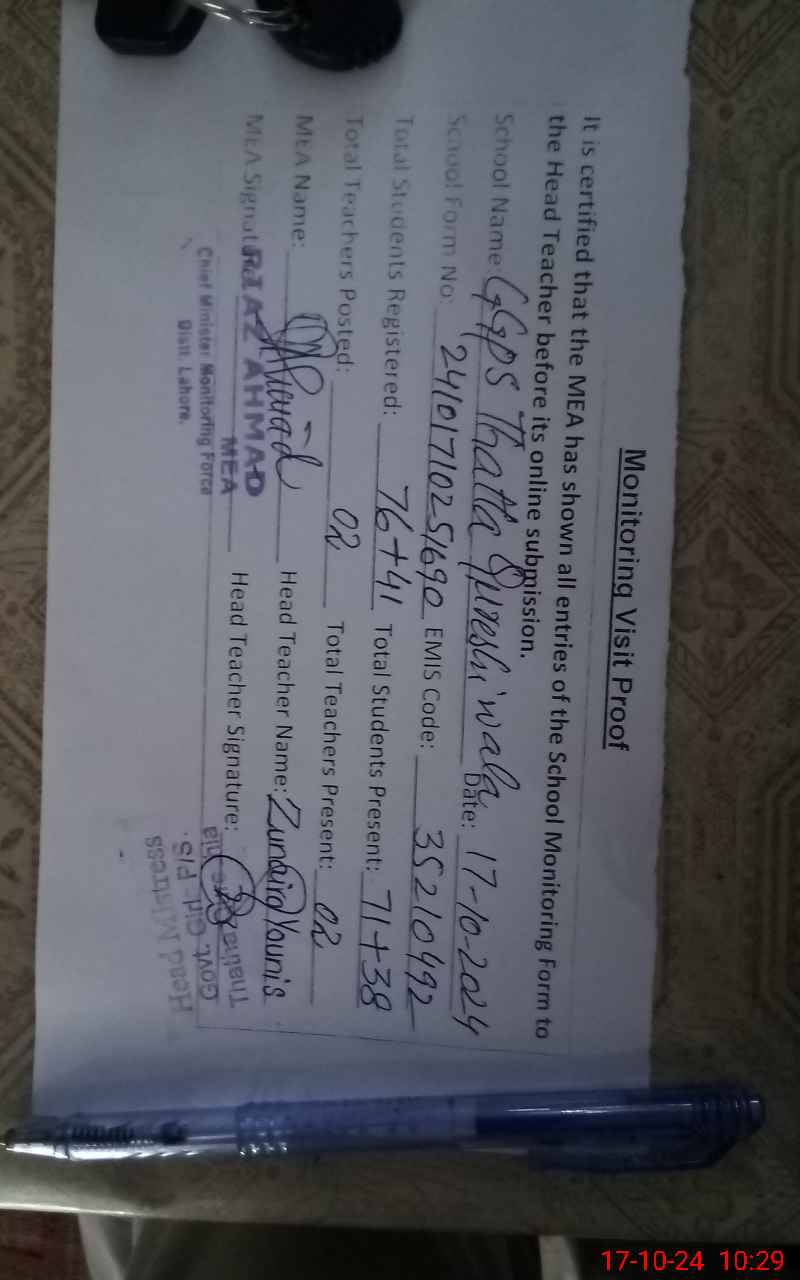 Monitoring Visit Proof
It is certified that the MEA has shown all entries of the School Monitoring Form to
the Head Teacher before its online submission.
School Name: GGPS Thatta Qureshi wala Date: 17-10-2024
School Form No: 24101710251690 EMIS Code: 35210492
Total Students Registered: 76+41 Total Students Present: 71+38
Total Teachers Posted: 02 Total Teachers Present: 02
MEA Name: Head Teacher Name: Zunaira Younis
MEA Signature: Head Teacher Signature:
RIAZ AHMAD
MEA
Chief Minister Monitoring Force
Distt. Lahore.
Head Mistress
Govt. Girl- P/S.
Thatta
17-10-24 10:29